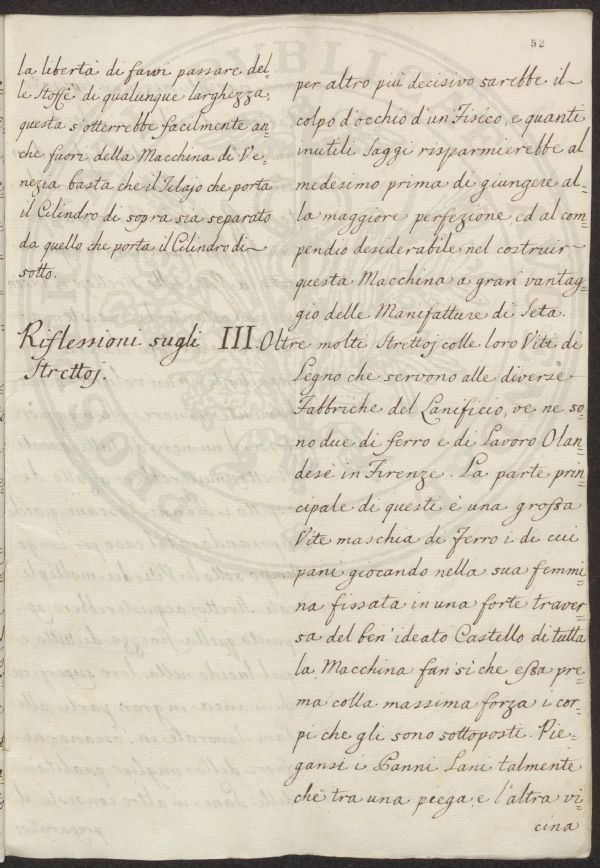 52
la libertà di farvi passare del=
le Stoffe di qualunque larghezza,
questa s'otterrebbe facilmente an=
che fuori della Macchina di Ve=
nezia basta che il Telajo che porta
il Cilindro di sopra sia separato
da quello che porta il Cilindro di
sotto.
Riflessioni sugli
Strettoj.
per altro più decisivo sarebbe il
colpo d'occhio d'un Fisico, e quanti
inutili Saggi risparmierebbe al
medesimo prima di giungere al=
la maggiore perfezione, ed al com=
pendio desiderabile nel costruir
questa Macchina a gran vantag=
gio delle Manifatture di Seta.
III. Oltre molti Strettoj colle loro Vite di
Legno che servono alle diverse
Fabbriche del Lanificio, ve ne so=
no due di ferro e di Lavoro Olan=
dese in Firenze. La parte prin=
cipale di questi è una grossa
Vite maschia di Ferro i di cui
pani giocando nella sua femmi=
na fissata in una forte traver=
sa del ben'ideato Castello di tutta
la Macchina fan sì che essa pre=
ma colla massima forza i cor=
pi che gli sono sottoposti. Pie=
gansi i Panni Lani talmente
che tra una piega e l'altra vi
cina